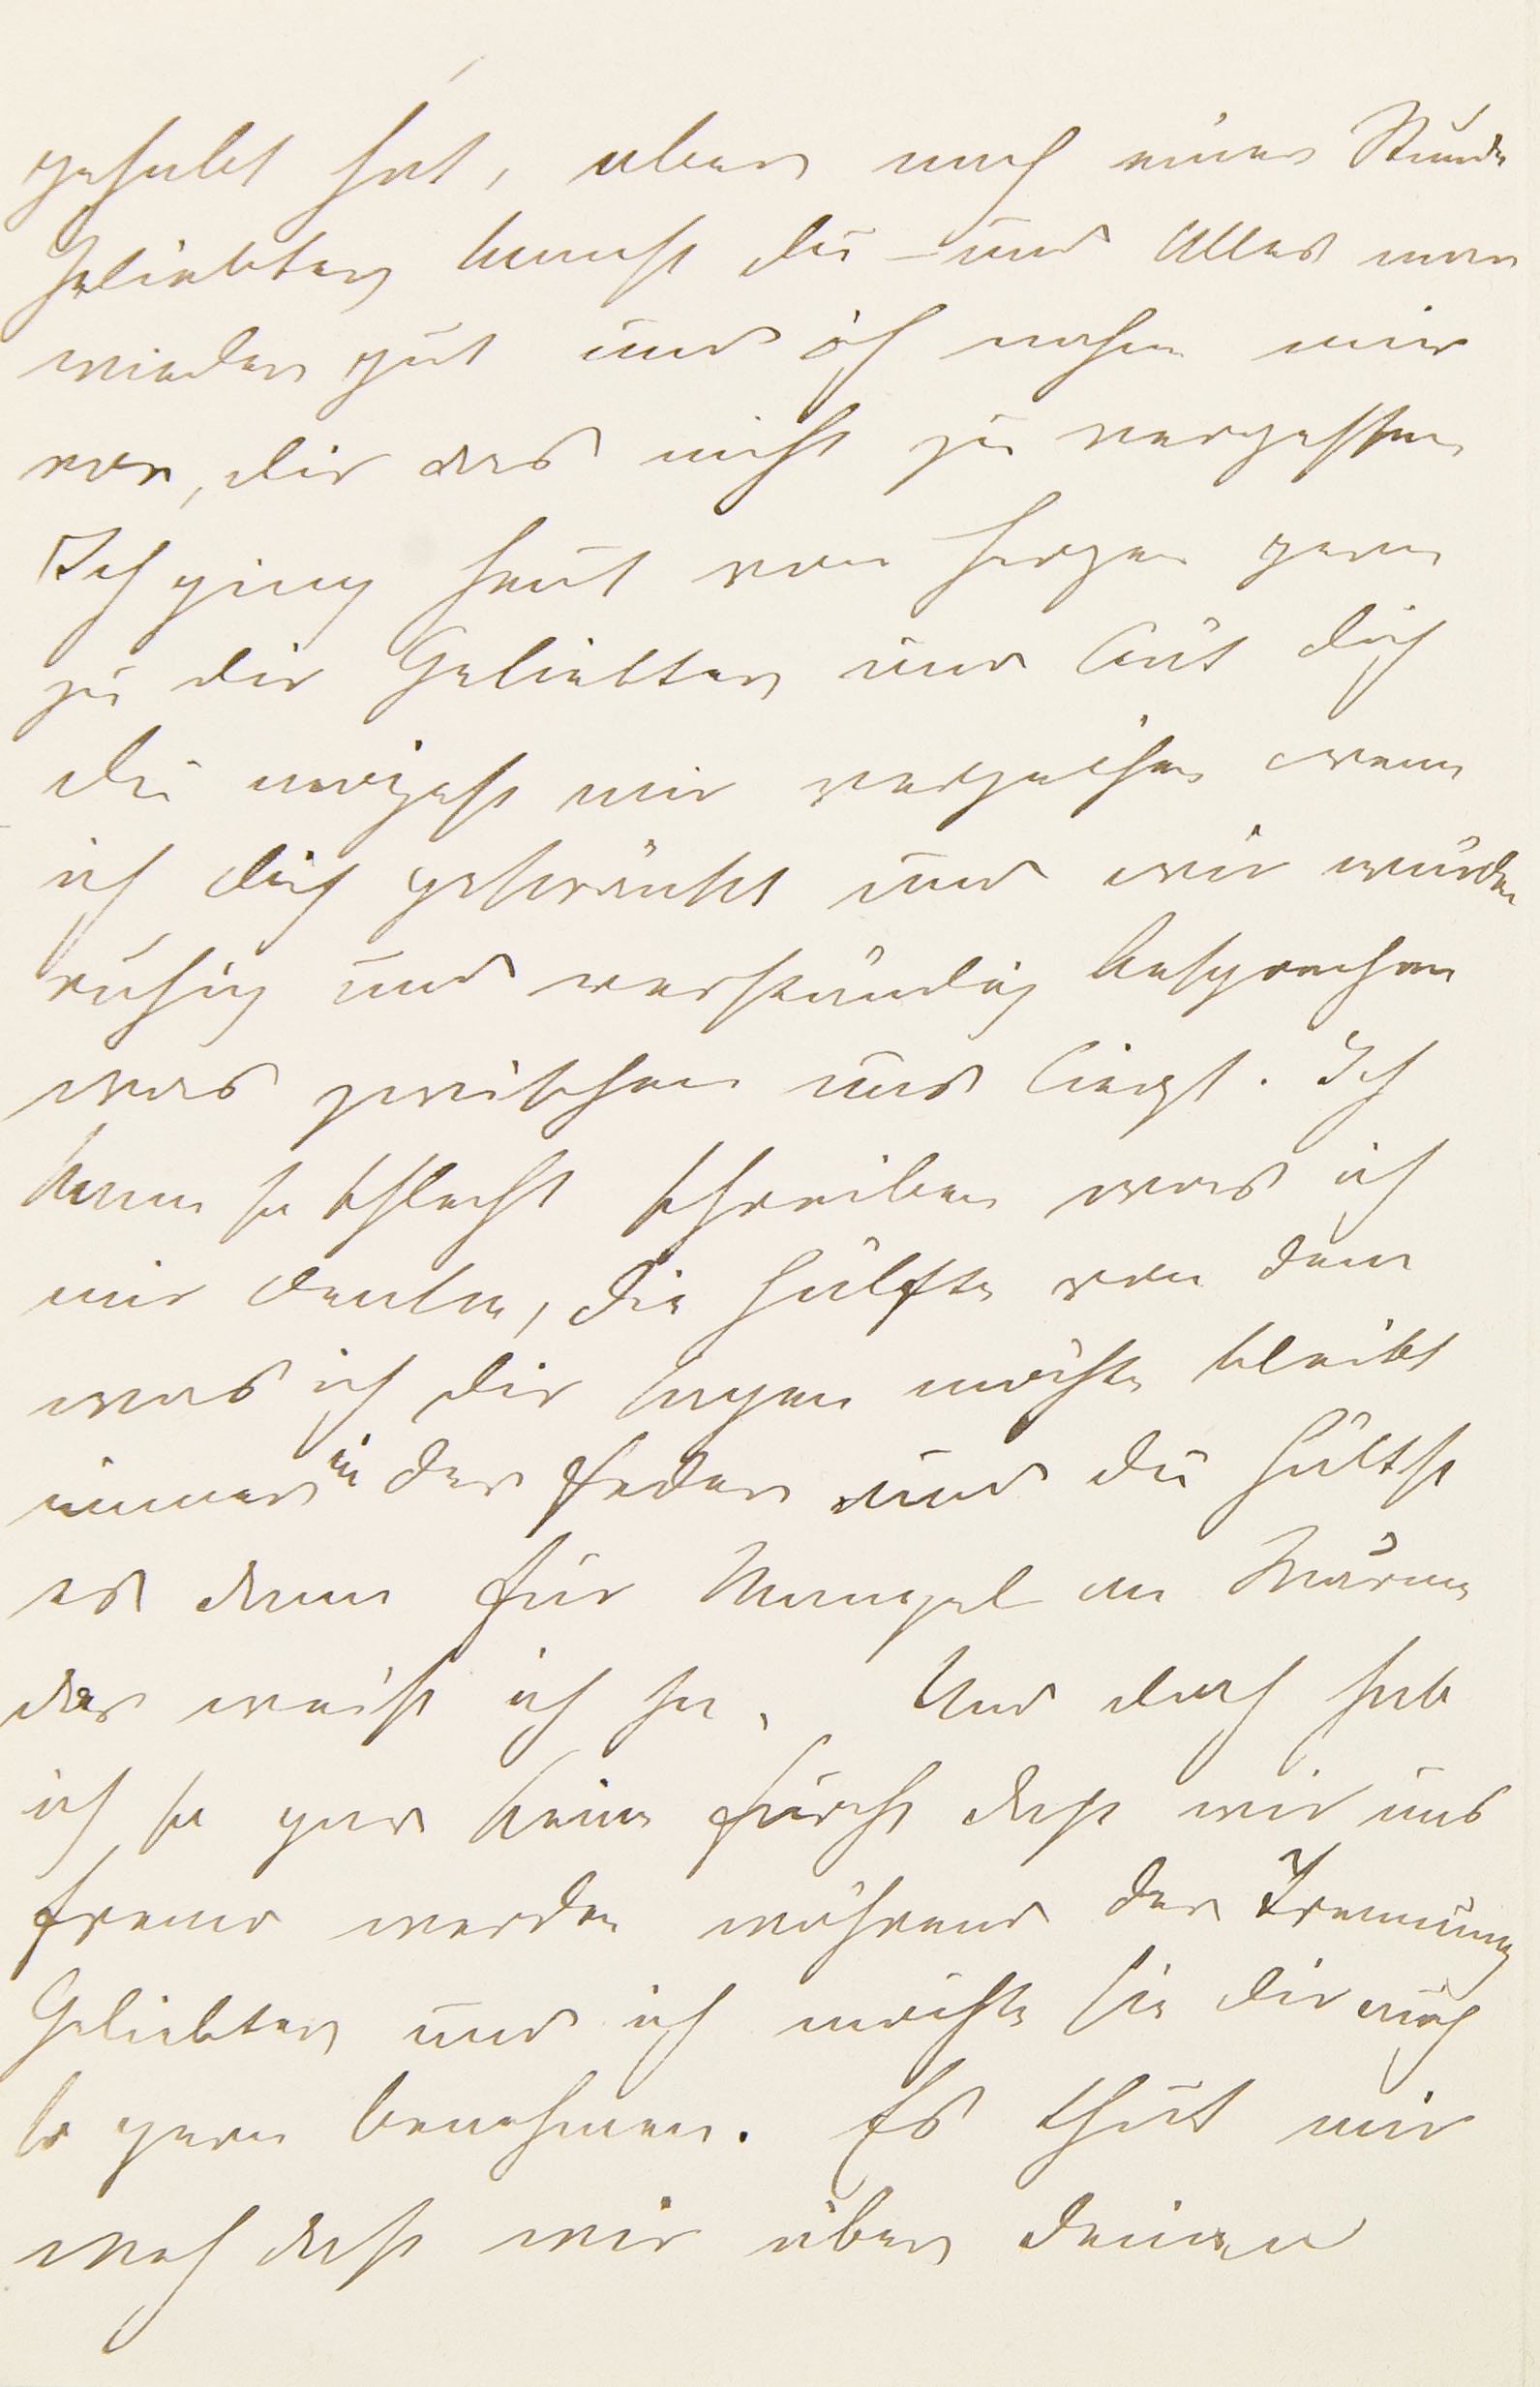 gehabt hat, aber nach einer Stunde
Geliebter kamst du – und Alles war
wieder gut und ich nahm mir
vor, dir das nicht zu vergessen
Ich ging heut von Herzen gern
zu dir Geliebter und bät dich
du mögest mir verzeihen wenn
ich dich gekränkt und wir würden
ruhig und verständig besprechen
was zwischen uns liegt. Ich
kann so schlecht schreiben was ich
mir denke, die Hälfte von dem
was ich dir sagen möchte bleibt
immer in der Feder und du hältst
es dann für Mangel an Wärme
das weiß ich ja. Und doch hab
ich so gar keine Furcht daß wir uns
fremd werden während der Trennung
Geliebter und ich möchte sie dir auch
so gern benehmen. Es thut mir
weh daß wir über deinen